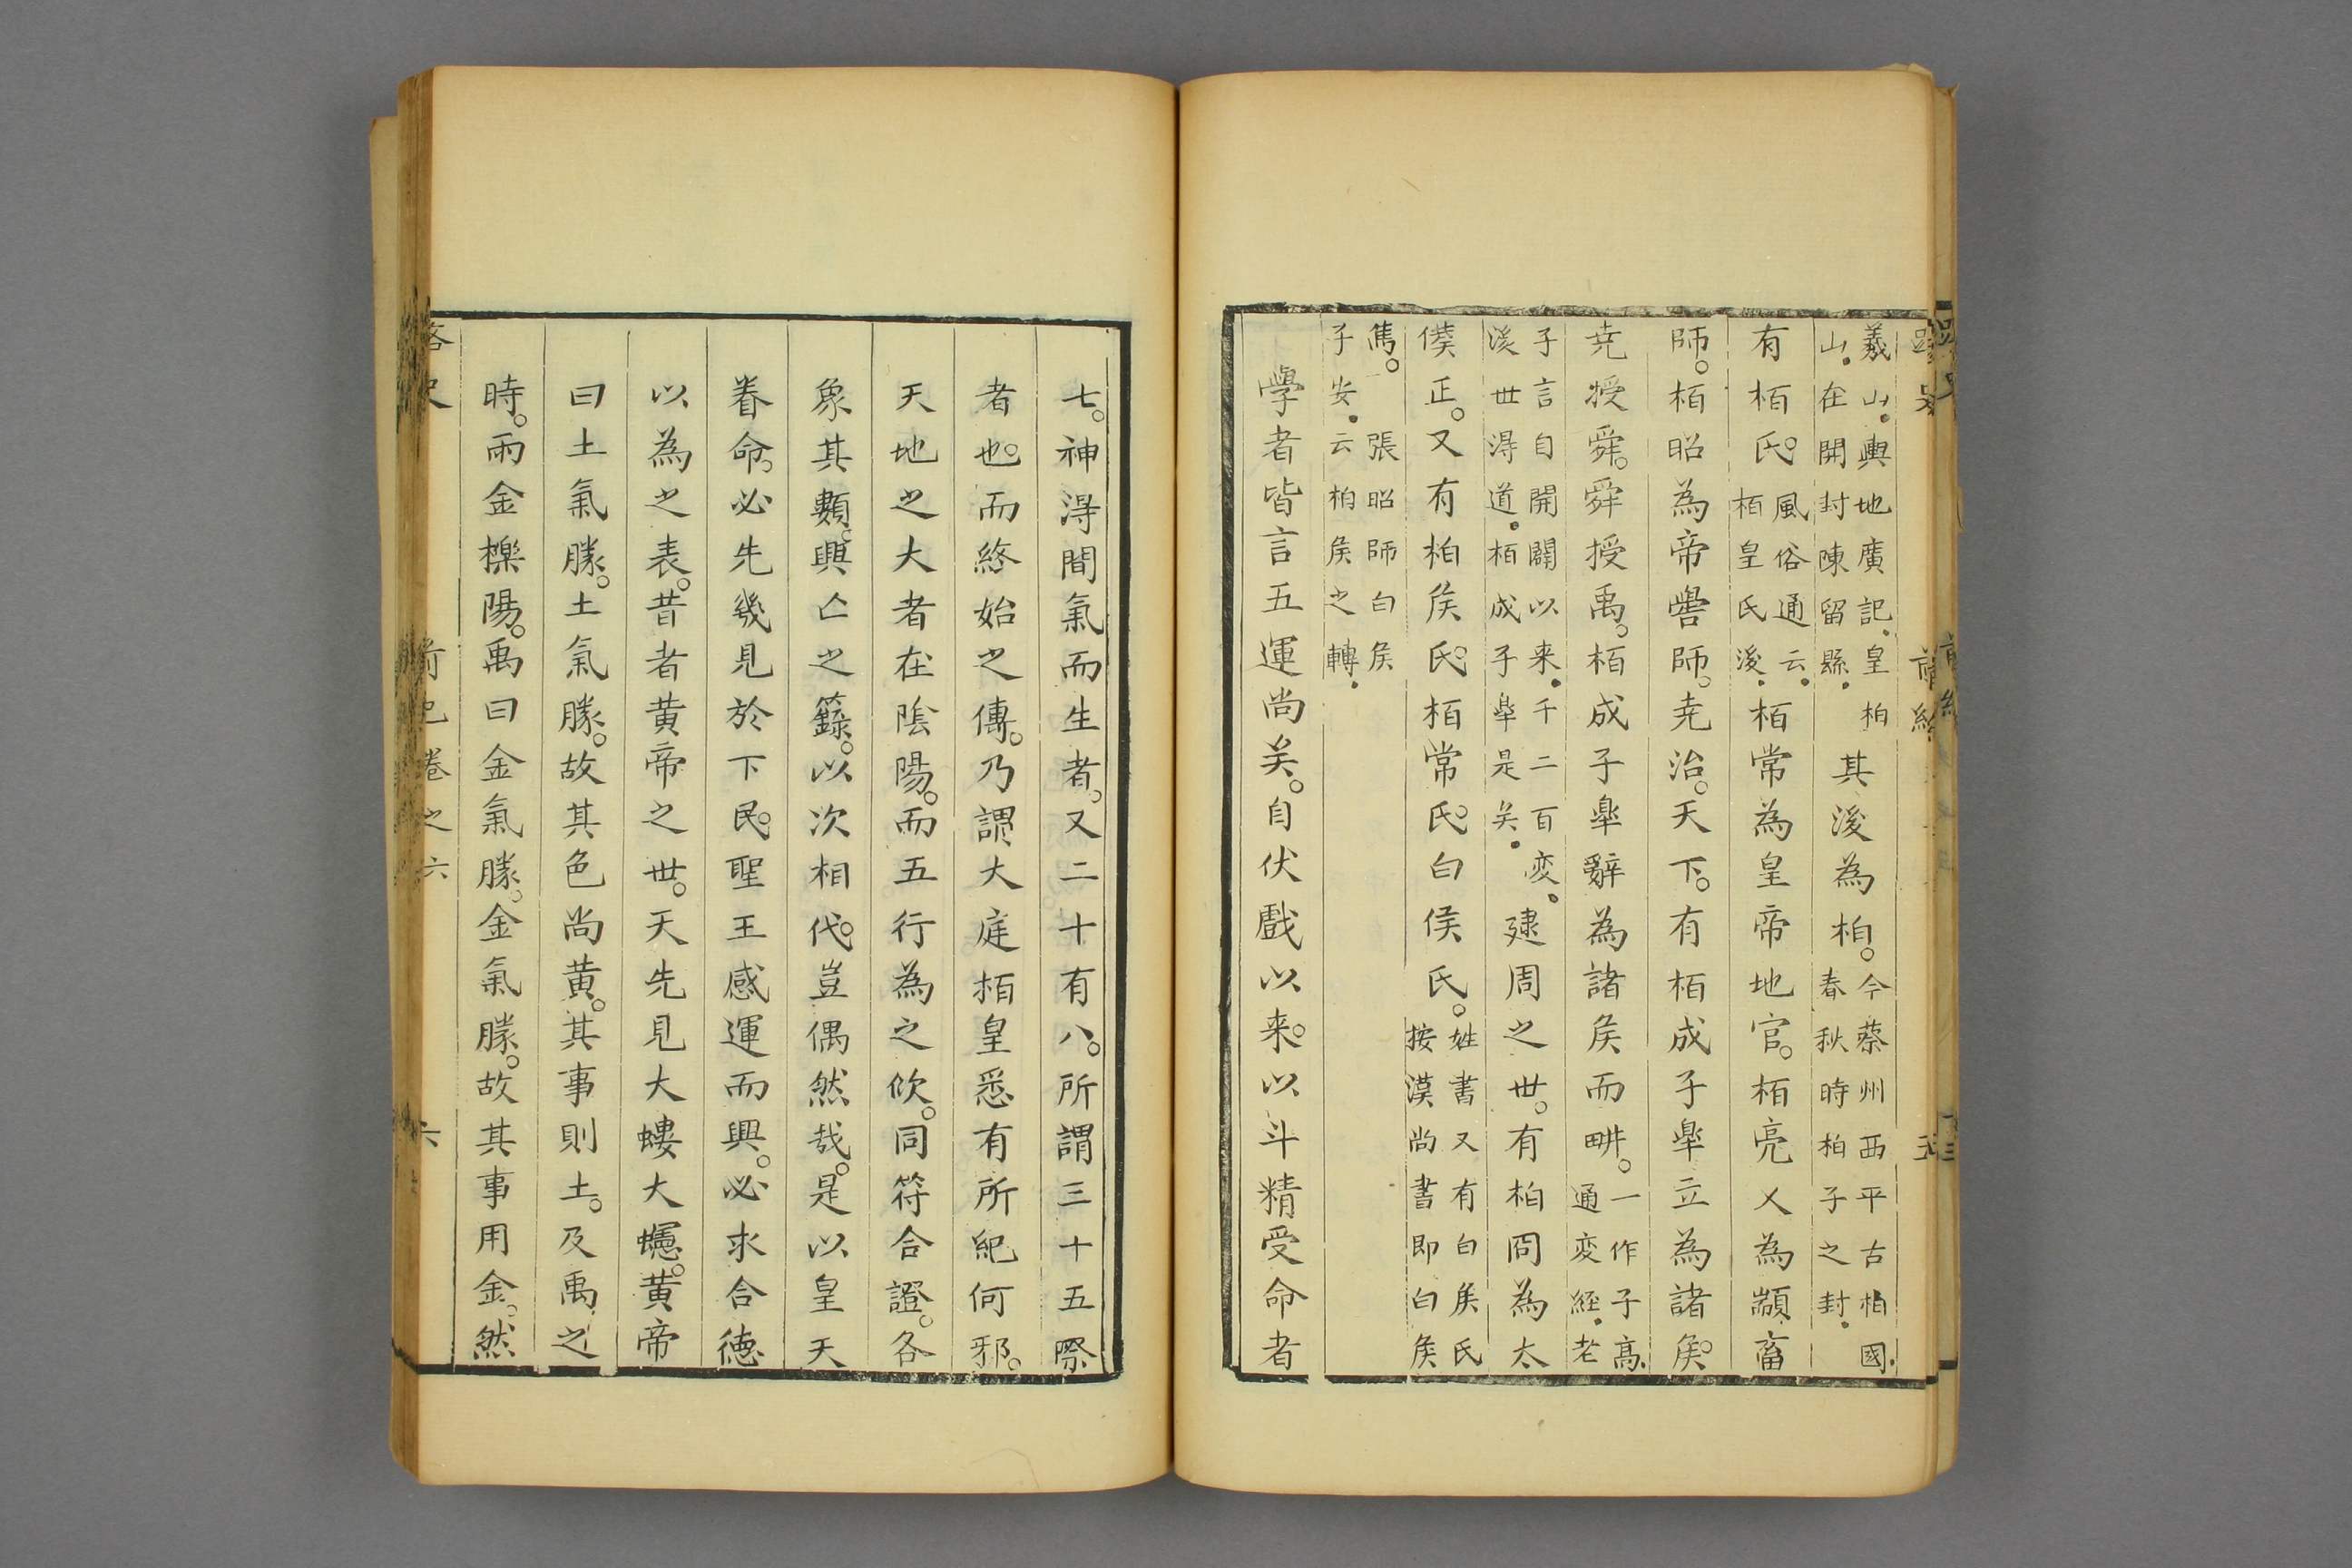 羲山。輿地廣記。皇柏山。在開封陳留縣。其後為柏。今蔡州西平古柏國。春秋時柏子之封。
有栢氏。風俗通云。栢皇氏後。栢常為皇帝地官。栢亮乂為顓畜
師。栢昭為帝嚳師。堯治。天下。有栢成子臯立為諸矦。
堯授舜。舜授禹。栢成子臯辭為諸矦而畊。一作子高。通変經。老
子言自開闢以来。千二百変。後世得道。栢成子臯是矣。建周之世。有柏冏為太
僕正。又有柏矦氏。栢常氏。白侯氏。姓書又有白矦氏。按漢尚書即白矦
雋。張昭師白矦子安。云柏矦之轉。
學者皆言五運尚矣。自伏戲以来。以斗精受命者
七。神得間氣而生者。又二十有八。所謂三十五際
者也。而終始之傳。乃謂大庭栢皇悉有所紀何邪。
天地之大者在陰陽。而五行為之佽。同符合證。各
象其類。興亡之籙。以次相代。豈偶然哉。是以皇天
眷命。必先幾見於下民。聖王感運而興。必求合德
以為之表。昔者黄帝之世。天先見大螻大螾。黄帝
曰土氣勝。土氣勝。故其色尚黄。其事則土。及禹之
時。雨金櫟陽。禹曰金氣勝。金氣勝。故其事用金。然
路史 前紀卷之六 六